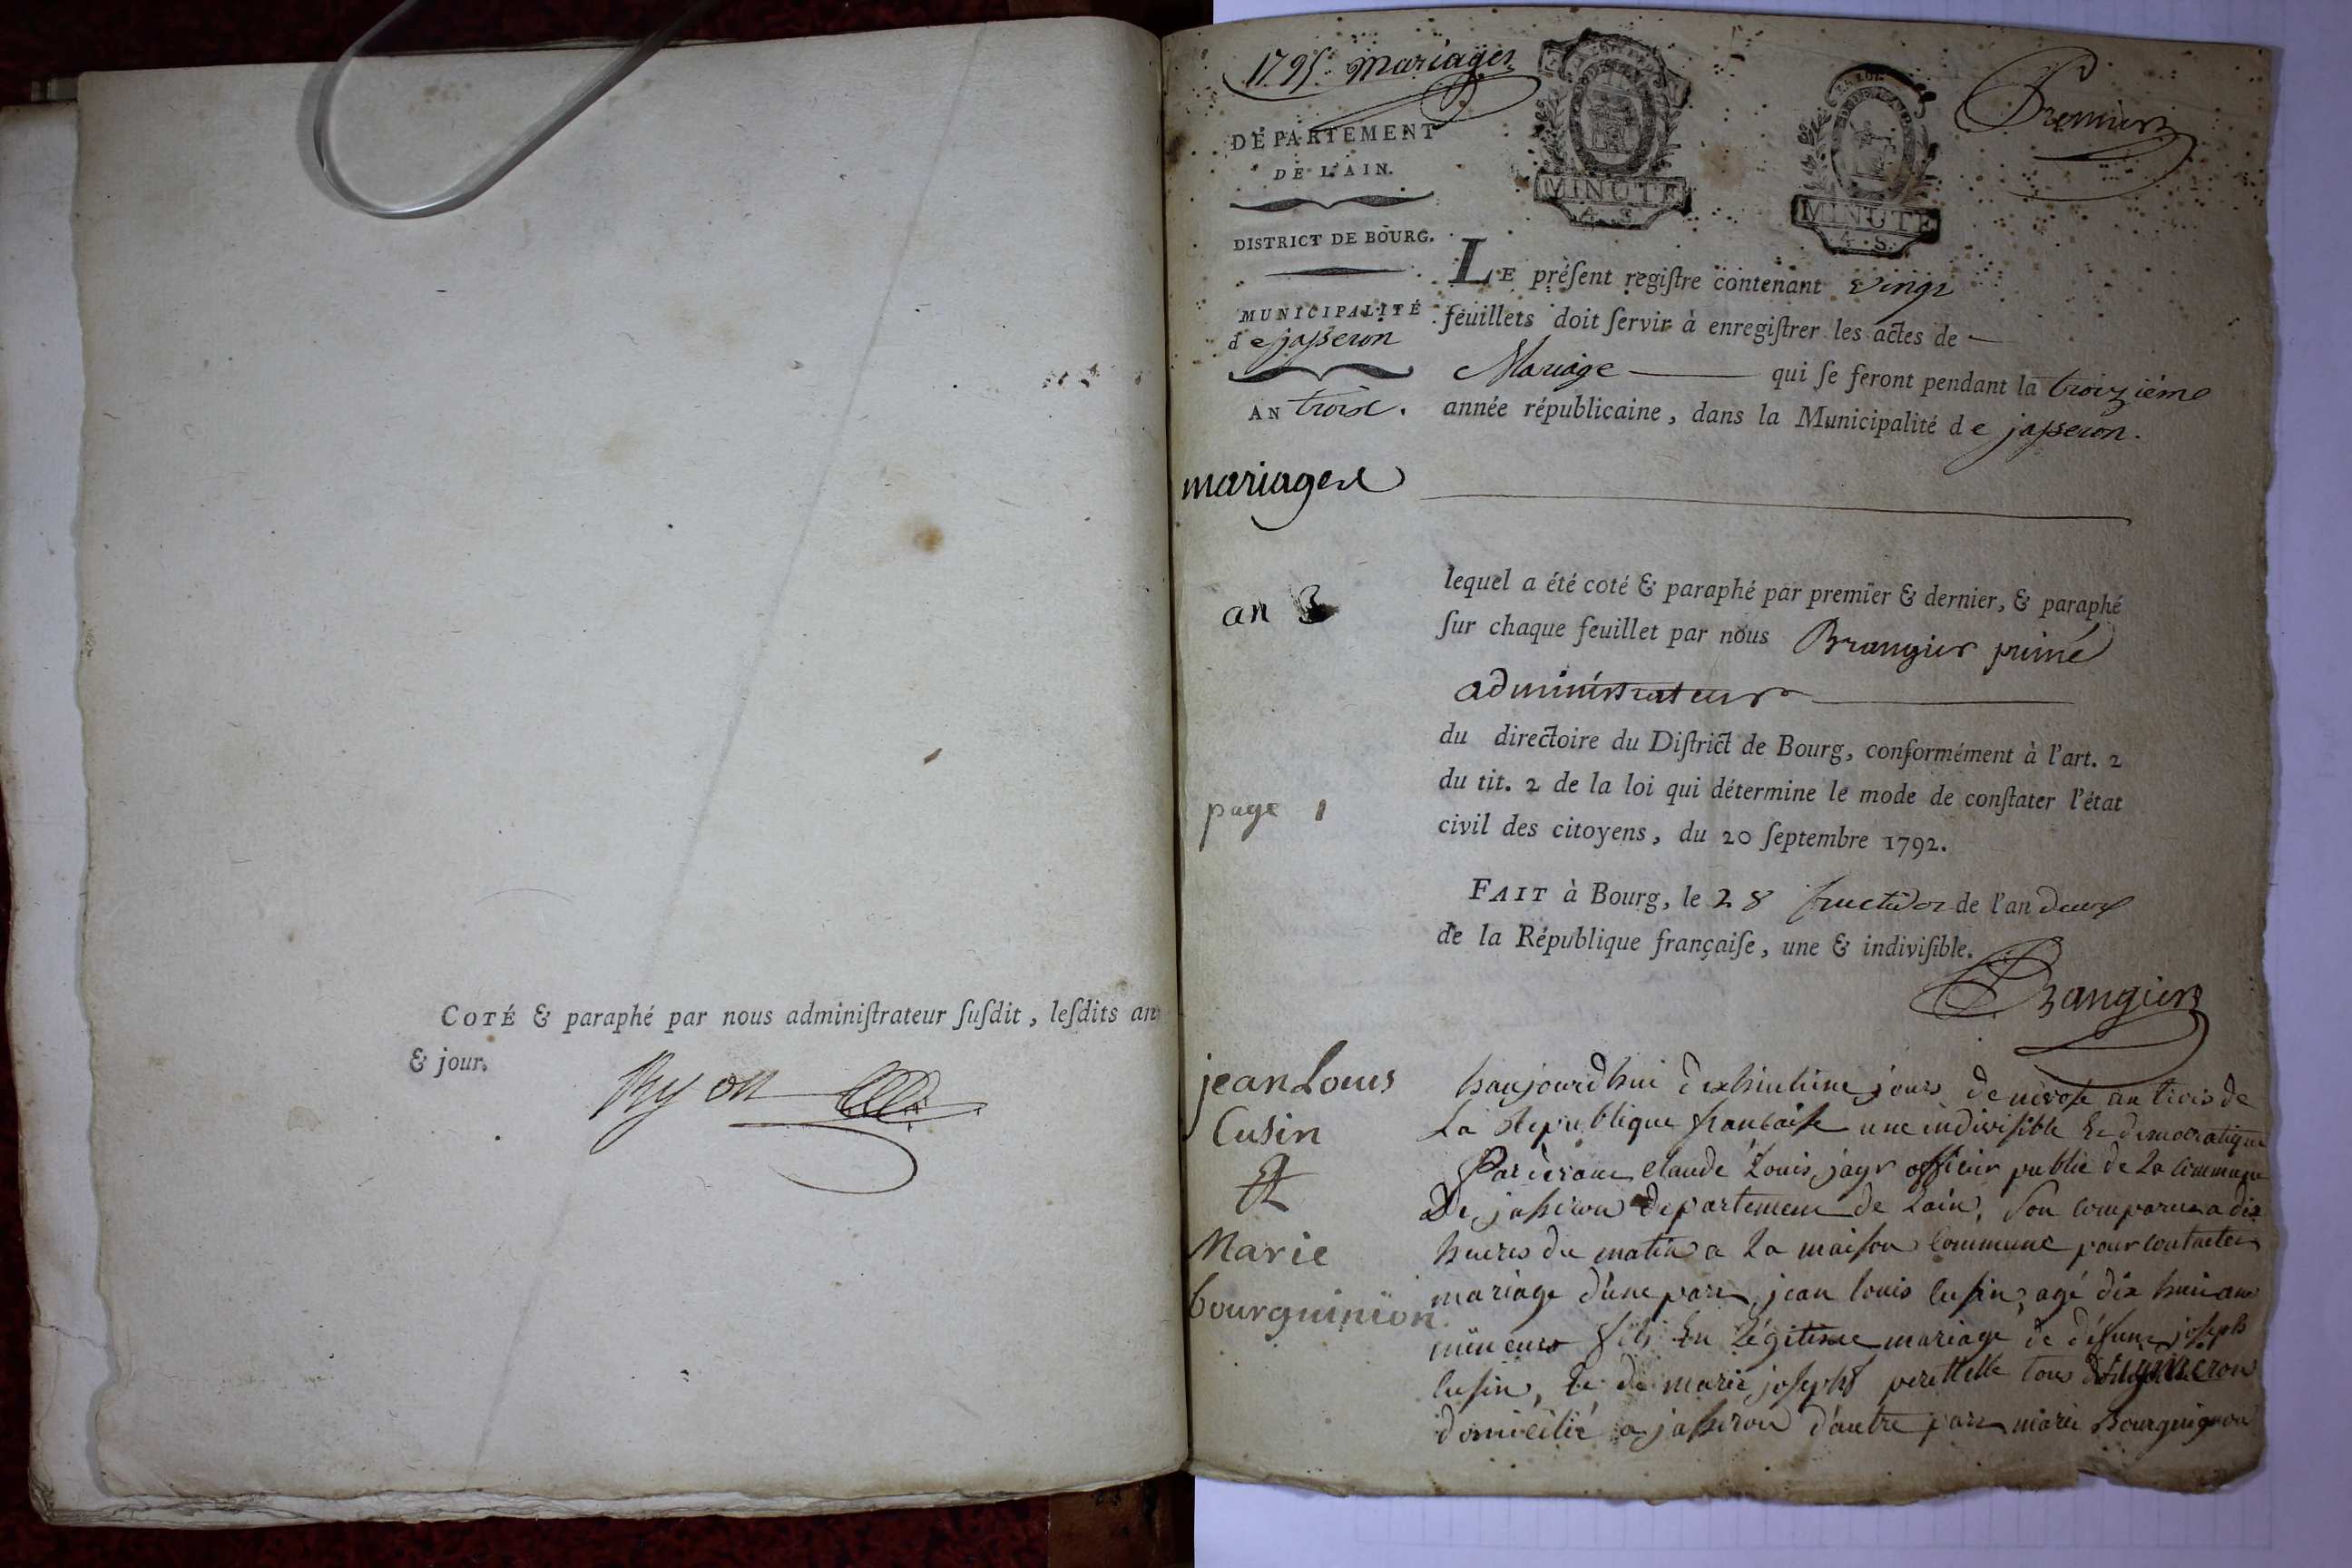 COTÉ & paraphé par nous adminiſtrateur ſuſdit, leſdits an
& jour.
Ryon
1795. mariages
Premier
DÉPARTEMENT
DE L'AIN.
DISTRICT DE BOURG.
MUNICIPALITÉ
de jasseron
AN trois.
MINUTE
4. S.
MINUTE
4. S.
LE préſent regiſtre contenant vingt
feuillets doit ſervir à enregiſtrer les actes de
Mariage qui ſe feront pendant la troizième
année républicaine, dans la Municipalité de jasseron.
mariages
an 3
page 1
lequel a été coté & paraphé par premier & dernier, & paraphé
ſur chaque feuillet par nous Brangier
administrateur
du directoire du Diſtrict de Bourg, conformément à l'art. 2
du tit. 2 de la loi qui détermine le mode de conſtater l'état
civil des citoyens, du 20 ſeptembre 1792.
FAIT à Bourg, le 28 fructidor de l'an deux
de la République françaiſe, une & indiviſible.
Brangier
jean Louis
Cusin
&
Marie
bourguinion
haujourdhui dixhuitième jours de nivose an trois de
La Republique francaise une indivisible Et democratique
Pardevant Claude Louis jayr officier public de La Commune
De jasseron departement de Lain, Son comparus a dix
heures du matin a La maison Commune pour contracter
mariage d'une part, jean louis Cusin, agé dix huit ans
mineur fils En Légitime mariage de défunt joseph
Cusin, Et de marie josepht tous
domicilié a jasseron d'autre part marie Bourguignon